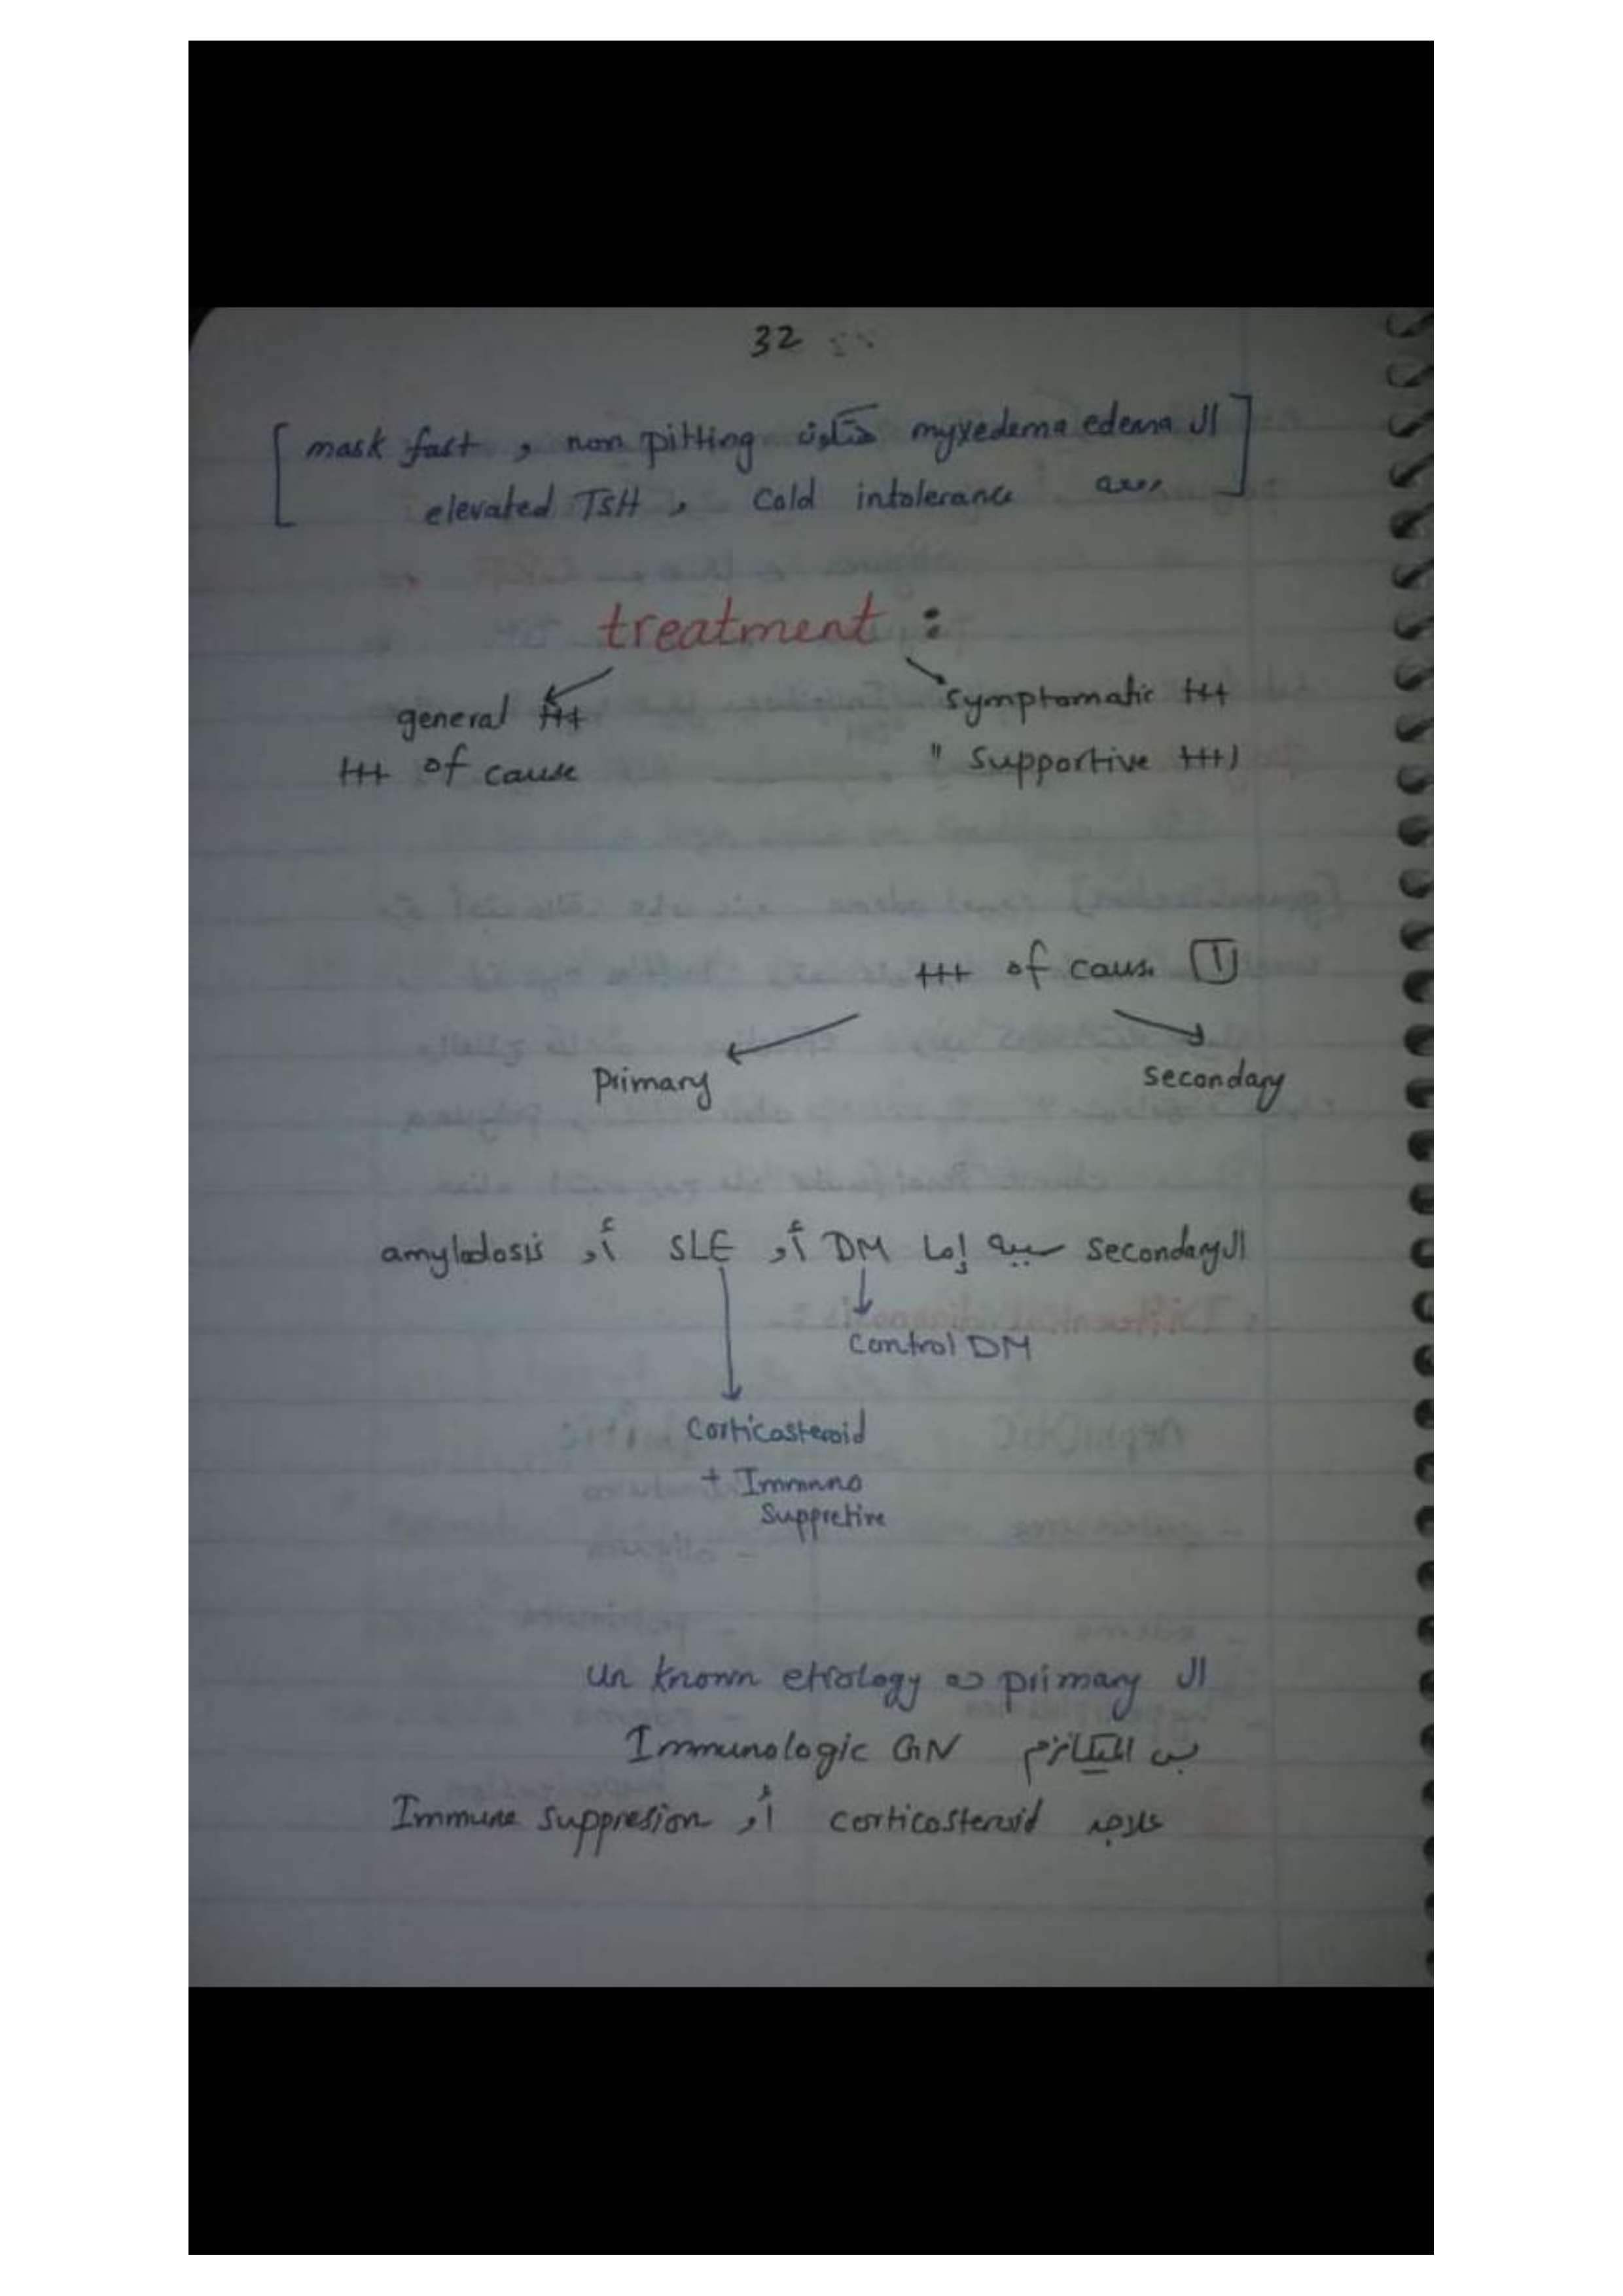 32
[ ال myxedema edema هتكون non pitting , mask fast
معاه cold intolerance , elevated TSH ]
treatment :
general ttt
symptomatic ttt
ttt of cause
" supportive ttt)
1 ttt of cause
primary
secondary
ال secondary سببه إما DM أو SLE أو amylodosis
Control DM
Corticosteroid
+ Immuno
Suppretive
ال primary ده un known etiology
بس الميكانزم Immunologic GN
علاجه corticosteroid أو Immune suppresion